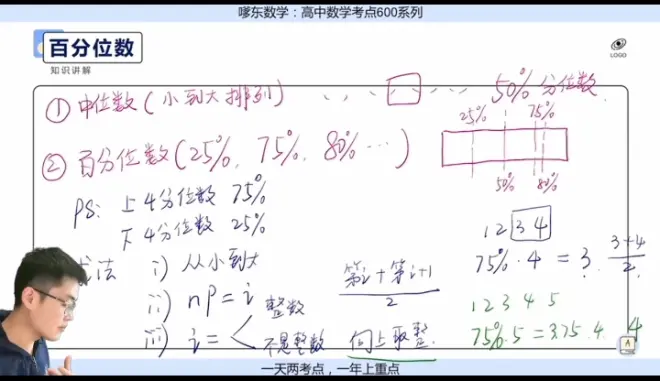 嗲东数学：高中数学考点600系列
百分位数
知识讲解
LOGO
① 中位数(小到大排列) 50%分位数
25% 75%
② 百分位数(25%, 75%, 80% …)
50% 80%
PS: 上4分位数 75%
下4分位数 25%
1 2 3 4
求法 i) 从小到大
第i + 第i+1
2
75%·4 = 3. 3+4
2
ii) np = i 整数
1 2 3 4 5
iii) i = < 不是整数 向上取整.
75%·5 = 3.75 4 4
A
一天两考点，一年上重点